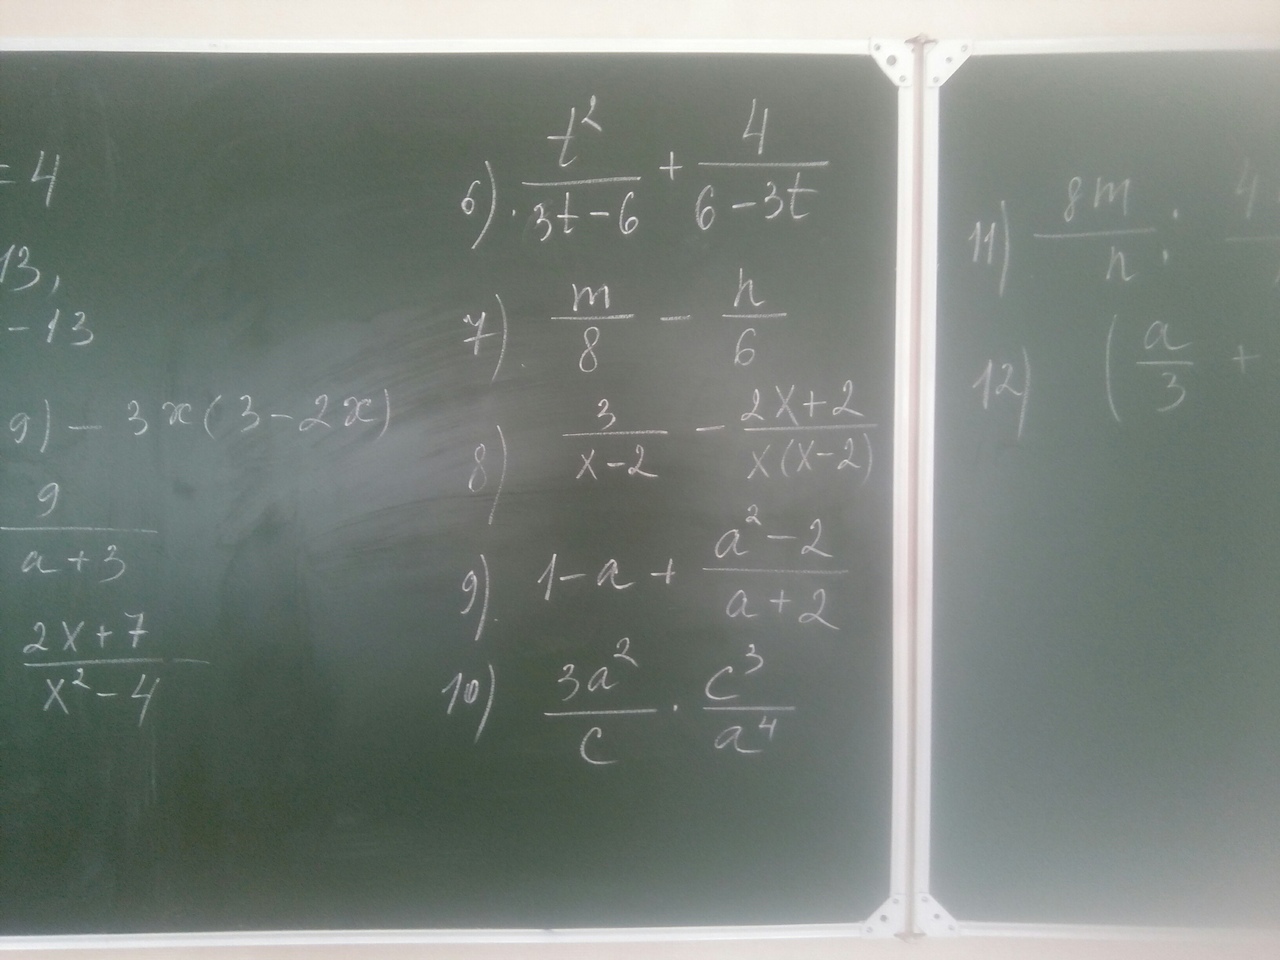 = 4
13,
- 13
9) - 3x(3-2x)
9/(a+3)
(2x+7)/(x²-4)
6). t²/(3t-6) + 4/(6-3t)
7). m/8 - n/6
8) 3/(x-2) - (2x+2)/(x(x-2))
9). 1-a + (a²-2)/(a+2)
10) 3a²/c · c³/a⁴
11) 8m/n : 4
12) (a/3 +